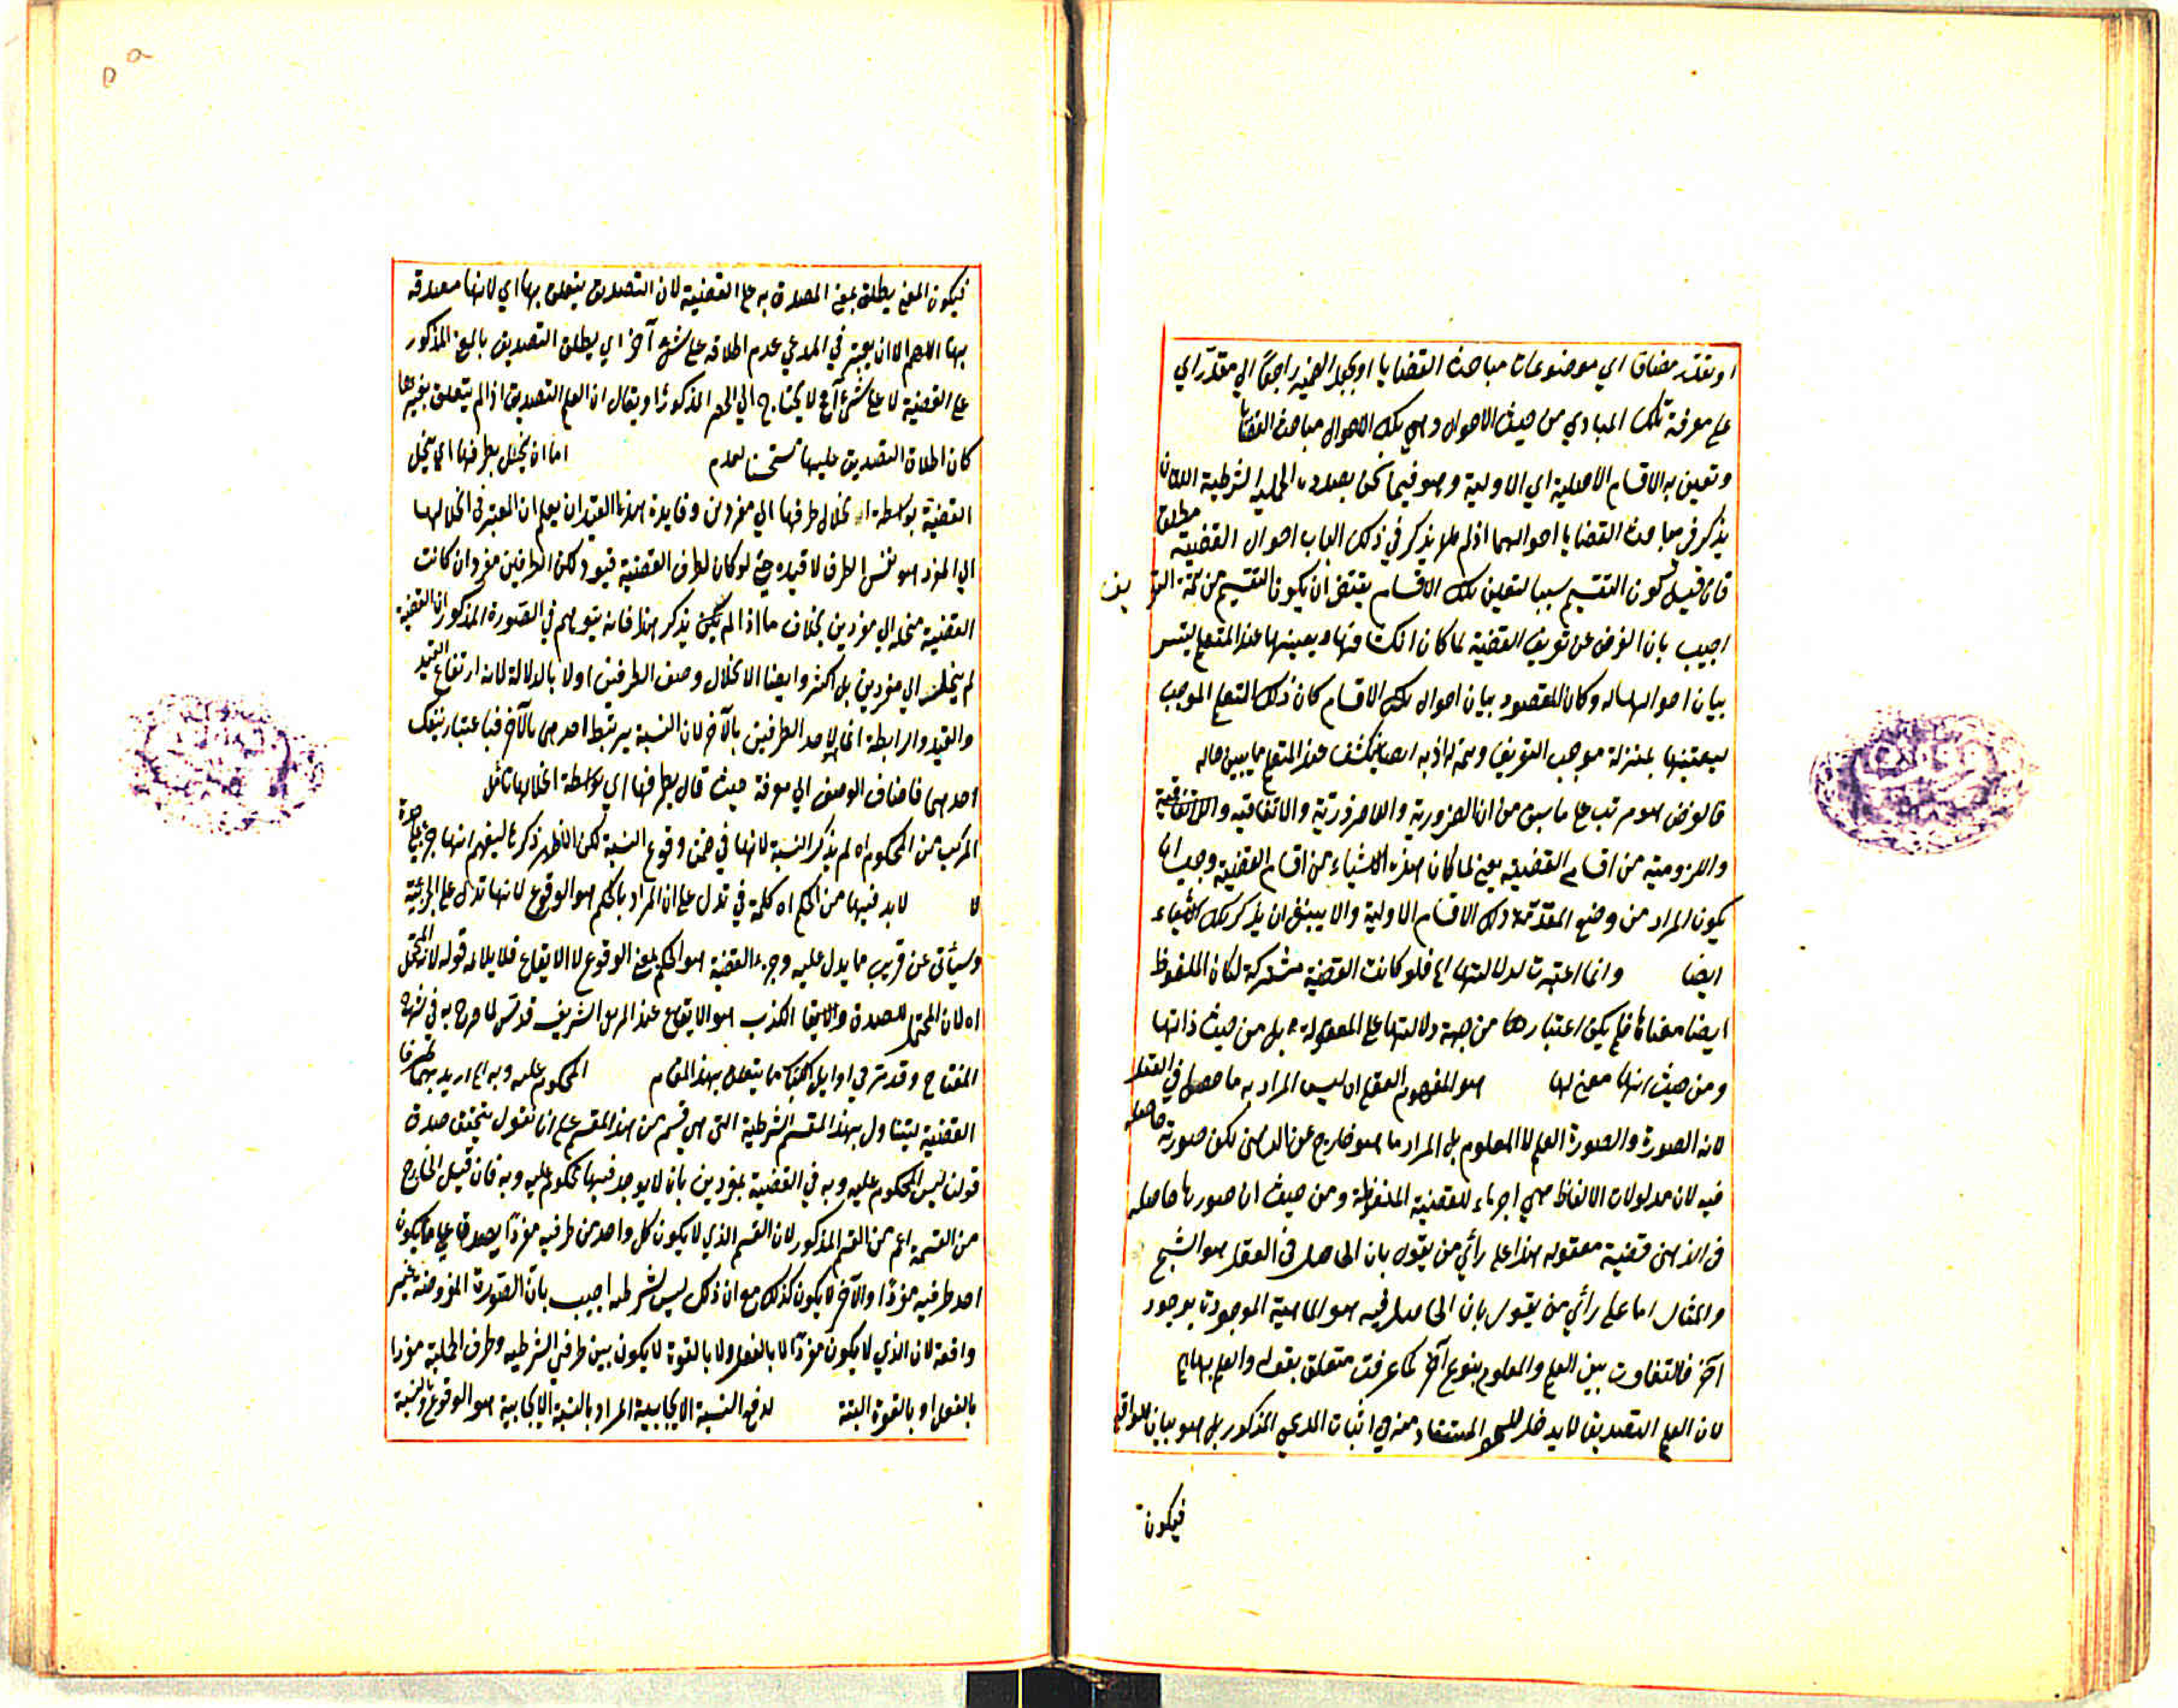 او بتقدير مضاف اي موضوعات مباحث القضايا او يجعل الضمير راجعاً الي مقدر اي
علي معرفة تلك المبادي من حيث الاحوال وهي تلك الاحوال مباحث القضايا
وتعين به الاقسام الاصلية اي الاولية وهو فيما نحن بصدده الحملية الشرطية اللتان
يذكر في مباحث القضايا احوالهما اذ لم يذكر في ذلك الباب احوال القضية مطلق
فان قيل كون التقسيم سببا لتعين تلك الاقسام يقتضي ان يكون التقسيم من تتمة التعريف
اجيب بان الغرض من تعريف القضية لما كان انكشافها وتعينها عند المتعلم ليتيسر
بيان احوالها له وكان المقصود بيان احوال تلك الاقسام كان ذلك التعلم الموجب
لتعينها بمنزلة موجب التعريف وتتمة له اذ به ايضا ينكشف عند المتعلم ما يبين حاله
فالغرض هو مرتب علي ما سبق من ان الضرورية واللاضرورية والاتفاقية واللااتفاقية
واللزومية من اقسام القضية يعني لما كان هذه الاشياء من اقسام القضية وجب ان
يكون المراد من وضع المقدمة ذلك الاقسام الاولية والا ينبغي ان يذكر تلك الاشياء
ايضا وانما اعتبرت لدلالتها اه فلو كانت القضية مشتركة لكان الملفوظ
ايضا معناها فلم يكن اعتبارها من جهة دلالتها علي المعقولة بل من حيث ذاتها
ومن حيث انها معني لها هو المفهوم العقلي اه ليس المراد به ما حصل في العقل
لانه الصورة والصورة العلم لا المعلوم بل المراد ما هو خارج عن الذهن لكن صورته حاصلة
فيه لان مدلولات الالفاظ هي اجزاء للقضية الملفوظة ومن حيث ان صورها حاصلة
في الذهن قضية معقولة هذا علي رأي من يقول بان الحاصل في العقل هو الشبح
والمثال اما علي رأي من يقول بان الحاصل فيه هو الماهية الموجودة بوجود
آخر فالتفاوت بين العلم والمعلوم بنوع آخر كما عرفت متعلق بقوله والعلم بها اه
لان العلم التصديق لا يدخل المستفاد منه في اثبات المدعي المذكور بل هو بيان للواقع
فيكون
فيكون المعني يطلق بمعني المصدق به علي القضية لان التصديق يتعلق بها اي لانها مصدقة
بها اللهم الا ان يعتبر في المدعي عدم اطلاقه علي شئ آخر اي يطلق التصديق بالمعني المذكور
علي القضية لا علي شئ آخر لا يحتاج الي الحصر المذكور او يقال ان العلم التصديق اذا لم يتعلق بغيرها
كان اطلاق التصديق عليها مستحسنا لعدم اما ان ينحل بطرفيها اي ينحل
القضية بواسطة انحلال طرفيها الي مفردين وفايدة هذا القيد ان يعلم ان المعتبر في انحلالها
الي المفرد هو نفس الطرف لا قيده حتي لو كان لطرف القضية قيود لكن الطرفين مفردان كانت
القضية منحلة الي مفردين بخلاف ما اذا لم يكن يذكر هذا فانه يتوهم في الصورة المذكور ان القضية
لم ينحل الي مفردين بل اكثر وايضا الانحلال وصف الطرفين اولا بالدلالة لانه ارتفاع القيد
والقيد والرابطة انما لاحد الطرفين بالآخر لان النسبة يرتبط احدهما بالآخر فباعتبار ينفك
احدهما فاضاف الوصف الي معرفة حيث قال بطرفيها اي بواسطة انحلالها تأمل
المركب من المحكوم اه لم يذكر النسبة لانها في ضمن وقوع النسبة لكن الاظهر ذكرها ليفهم انها جزء علي حدة
لا لا بد فيها من الحكم اه كلمة في تدل علي ان المراد بالحكم هو الوقوع لانها تدل علي الجزئية
وسيأتي عن قريب ما يدل عليه وجزء القضية هو الحكم بمعني الوقوع لا الايقاع فلا يلائمه قوله لانه المحتمل
اه لان المحتمل للصدق والكذب هو الايقاع عند الشريف قدس لما صرح به في شرح
المفتاح وقد مر في اوايل الكتاب ما يتعلق بهذا المقام المحكوم عليه وبه اه اريد بهما طرفا
القضية ليتناول بهذا المقسم الشرطية التي هي قسم من هذا المقسم علي ان نقول يتحقق صدق
قولنا ليس المحكوم عليه وبه في القضية بمفردين بان لا يوجد فيها محكوم عليه وبه فان قيل الخارج
من القسمة اعم من القسم المذكور لان القسم الذي لا يكون كل واحد من طرفيه مفردا يصدق علي ما يكون
احد طرفيه مفردا والآخر لا يكون كذلك مع ان ذلك ليس شرطية اجيب بان الصورة المفروضة غير
واقعة لان الذي لا يكون مفردا لا بالفعل ولا بالقوة لا يكون بين طرفي الشرطية وطرف الحملية مفردا
بالفعل او بالقوة البتة لدفع النسبة الايجابية المراد بالنسبة الايجابية هو الوقوع والنسبة